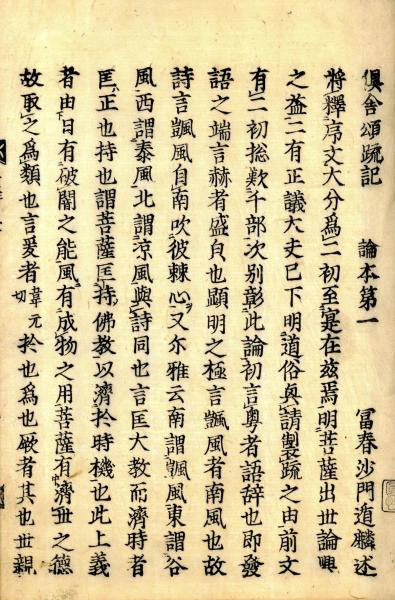 俱舍頌疏記　論本第一　冨春沙門遁麟述
將釋序文大分爲二初至寔在茲焉明菩薩出世論興
之益二有正議大夫已下明道俗奐請製疏之由前文
有二初総歎千部次别彰此論初言粤者語辭也即發
語之端言赫者盛皃也顯明之極言飄風者南風也故
詩言飄風自南吹彼棘心又尒雅云南謂飄風東謂谷
風西謂泰風北謂凉風與詩同也言匡大教而濟時者
匡正也持也謂菩薩匡持佛教以濟於時機也此上義
者由日有破闇之能風有成物之用菩薩有濟世之德
故取之爲類也言爰者韋元切於也爲也厥者其也世親